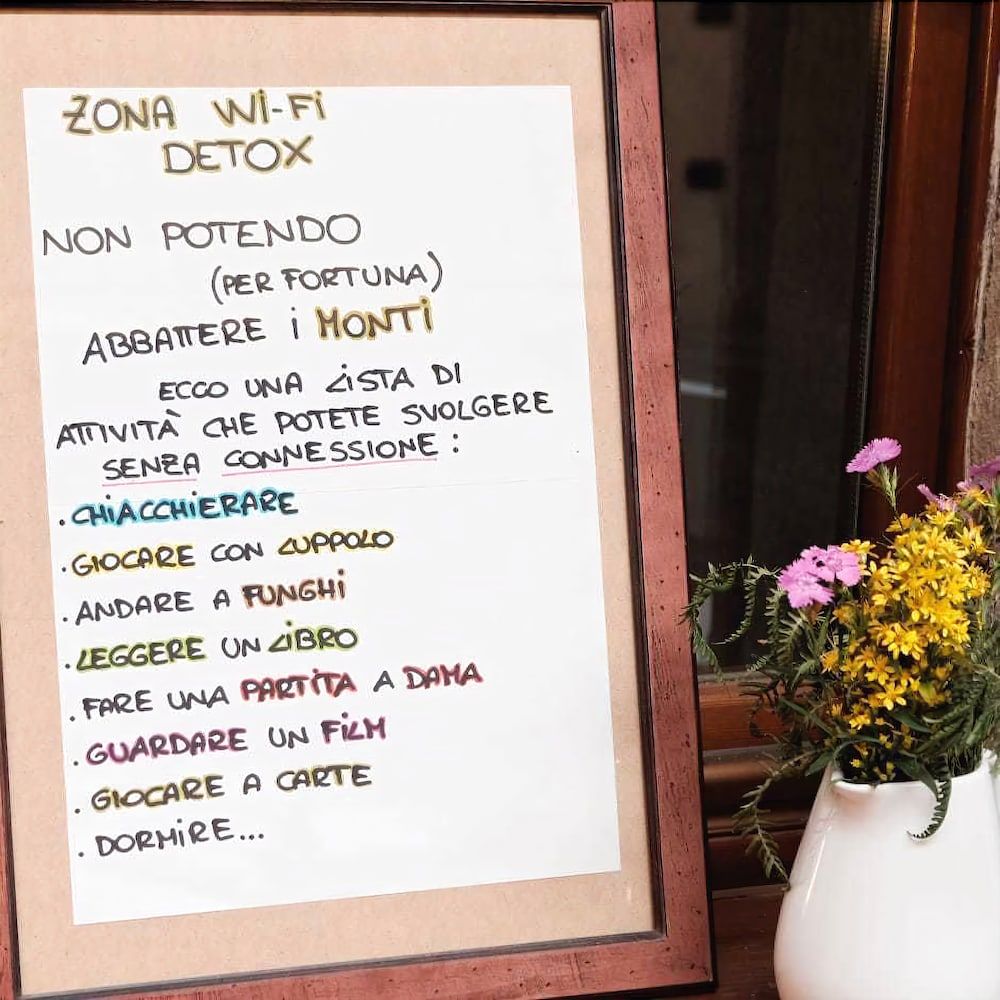 ZONA Wi-Fi
DETOX
NON POTENDO
(PER FORTUNA)
ABBATTERE i MONTi
ECCO UNA LiSTA DI
ATTIVITÀ CHE POTETE SVOLGERE
SENZA CONNESSIONE:
.CHiACCHiERARE
.GIOCARE CON LUPPOLO
.ANDARE A FUNGHi
.LEGGERE UN LiBRO
.FARE UNA PARTiTA A DAMA
.GUARDARE UN FiLM
.GIOCARE A CARTE
.DORMiRE...